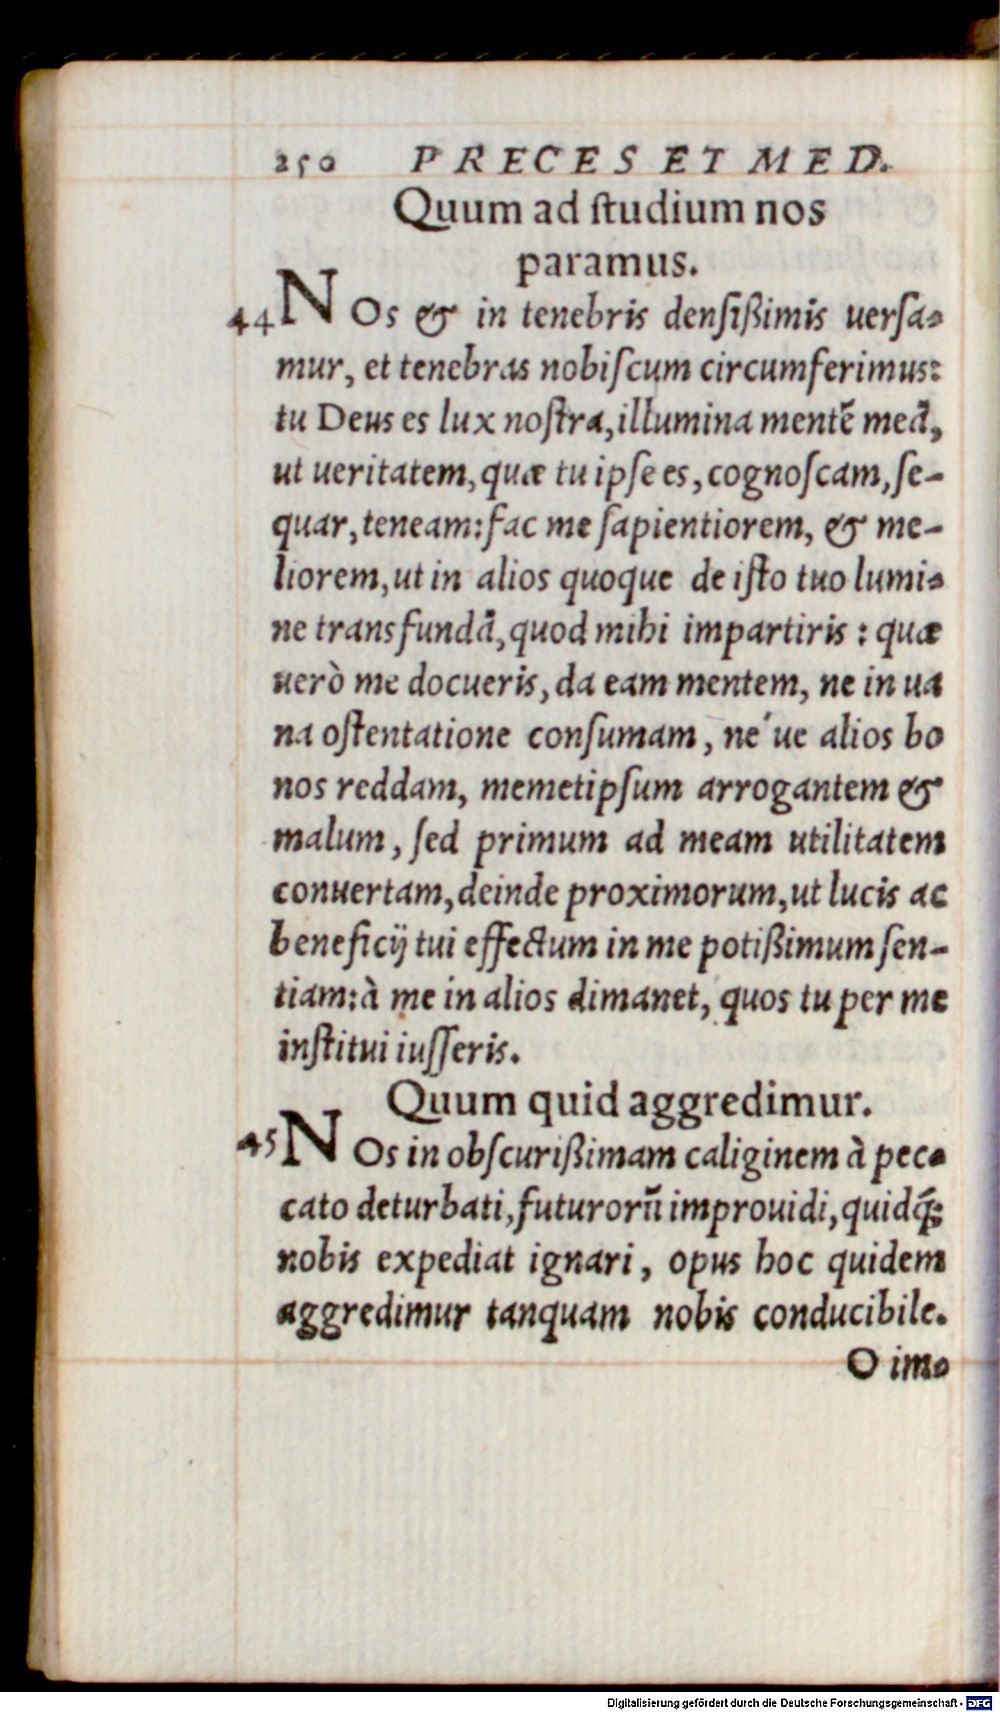 250 PRECES ET MED.
Quum ad ſtudium nos
paramus.
44 NOs & in tenebris denſißimis uerſa-
mur, et tenebras nobiſcum circumferimus:
tu Deus es lux noſtra, illumina mentē meā,
ut ueritatem, quæ tu ipſe es, cognoſcam, ſe-
quar, teneam: fac me ſapientiorem, & me-
liorem, ut in alios quoque de iſto tuo lumi-
ne transfundā, quod mihi impartiris : quæ
uerò me docueris, da eam mentem, ne in ua
na oſtentatione conſumam, ne´ue alios bo
nos reddam, memetipſum arrogantem &
malum, ſed primum ad meam utilitatem
conuertam, deinde proximorum, ut lucis ac
beneficij tui effectum in me potißimum ſen-
tiam: à me in alios dimanet, quos tu per me
inſtitui iuſſeris.
Quum quid aggredimur.
45 NOs in obſcurißimam caliginem à pec-
cato deturbati, futurorū improuidi, quidq́;
nobis expediat ignari, opus hoc quidem
aggredimur tanquam nobis conducibile.
O im-
Digitalisierung gefördert durch die Deutsche Forschungsgemeinschaft - DFG